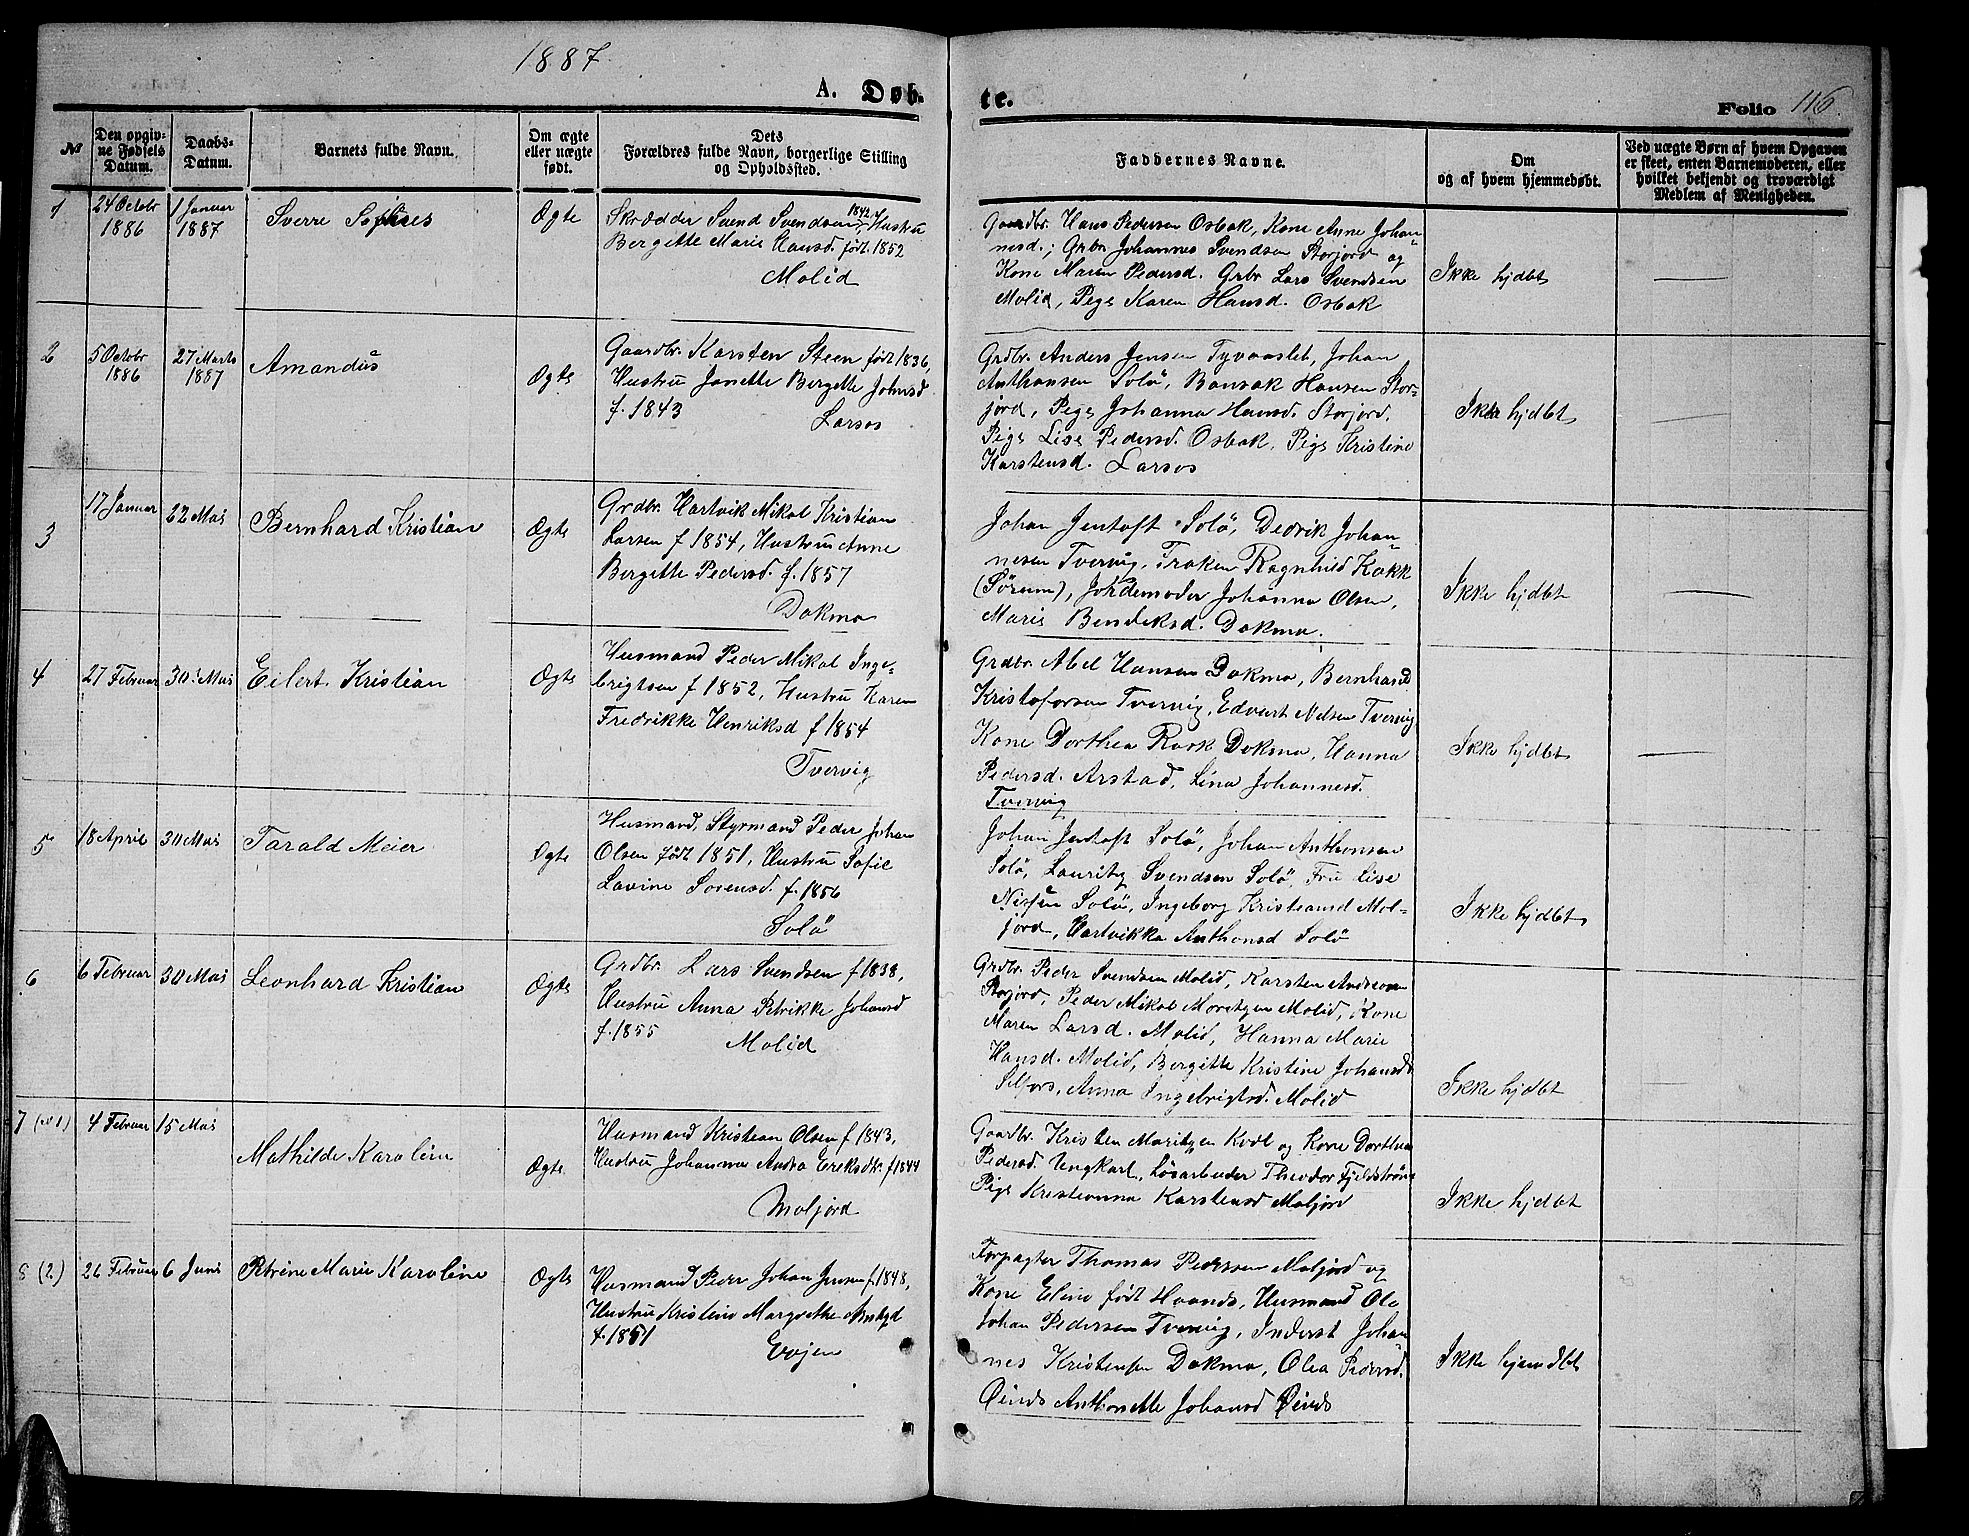 1887.
A. Døb-
te.
Folio 116.
No
Den opgiv-
ne Fødsels
Datum.
Daabs-
Datum.
Barnets fulde Navn.
Om ægte
eller uægte
født.
Dets
Forældres fulde Navn, borgerlige Stilling
og Opholdssted.
Faddernes Navne.
Om
og af hvem hjemmedøbt.
Ved uægte Børn af hvem Opgaven
er skeet, enten Barnemoderen, eller
hvilket bekjendt og troværdigt
Medlem af Menigheden.
1
24 Octobr
1886
1 Januar
1887
Sverre
Ægte
Skrædder Svend Svendsen 1842, Hustru
Bergitte Marie Hansd. født 1852
Molid
Gaardbr. Hans Pedersen Osbak, Kone Anne Johan-
nesd.; Grbr. Johannes Svendsen Storjord og
Kone Maren Pedersd. Grbr Lars Svendsen
Molid, Pige Karen Hansd. Osbak
Ikke hjdbt
2
5 Octobr
1886
27 Marts
1887
Amandus
Ægte
Gaardbr. Karsten Steen født 1836,
Hustru Janette Bergitte Johnsd
f. 1843
Larsos
Grdbr. Anders Jensen Johan
Anthonsen Solö, Hansen Stor-
jord, Pige Johanna Hansd. Storjord,
Pige Lise Pedersd. Osbak, Pige Kristine
Karstensd. Larsos
Ikke hjdbt
3
17 Januar
22 Mai
Bernhard Kristian
Ægte
Grdbr. Hartvik Mikal Kristian
Larsen f 1854, Hustru Anne
Bergitte Pedersd. f. 1857
Dokmo
Johan Jentoft Solö, Dedrik Johan-
nesen Tvervig, Frøken Ragnhild Kokk
(Sörum), Jordemoder Johanna Olsen,
Marie Bendiksd. Dokmo.
Ikke hjdbt
4
27 Februar
30 Mai
Eilert Kristian
Ægte
Husmand Peder Mikal Inge-
brigtsen f 1852, Hustru Karen
Fredrikke Henriksd f 1854
Tvervig
Grdbr. Abel Hansen Dokmo, Bernhard
Kristofersen Tvervig, Edvart Nilsen Tvervig
Kone Dorthea Rosk Dokmo, Hanna
Pedersd. Arstad, Lina Johannesd.
Tvervig
Ikke hjdbt
5
18 April
30 Mai
Tarald Meier
Ægte
Husmand, Styrmand Peder Johan
Olsen født 1851, Hustru Sofie
Lavine Sorensd. f. 1856
Solö
Johan Jentoft Solö, Johan Anthonsen
Solö, Lauritz Svendsen Solö, Fru Lise
Solö, Ingeborg Kristiansd Mol-
jord, Hartvikka Anthonsd Solö
Ikke hjdbt
6
6 Februar
30 Mai
Leonhard Kristian
Ægte
Grdbr. Lars Svendsen f 1838,
Hustru Anna Petrikke Johansd
f. 1855
Molid
Grdbr. Peder Svendsen Molid, Karsten Andresen
Storjord, Peder Mikal Moretzen Molid, Kone
Maren Larsd. Molid, Hanna Marie
Hansd. Molid, Bergitte Kristine Johansd
Selfors, Anna Ingebrigtsd. Molid
Ikke hjdbt
7
4 Februar
15 Mai
Mathilde Karoline
Ægte
Husmand Kristian Olsen f 1843,
Hustru Johanna Andrea Eriksdtr. f 1844
Moljord
Gaardbr. Kristen Moritzen Kvæl og Kone Dorthea
Pedersd. Ungkarl, Løsarbeider Theodor Fjeldstrøm
Pige Kristianna Karstensd Moljord
Ikke hjdbt
8 (2)
26 Februar
6 Juni
Petrine Marie Karoline
Ægte
Husmand Peder Johan Jensen f. 1848,
Hustru Kristine Margrethe
f. 1851
Evjen
Forpagter Thomas Pedersen Moljord og
Kone Eline født Haands, Husmand Ole
Johan Pedersen Tvervig, Inderst Johan
nes Kristensen Dokmo, Olea Pedersd.
Øines Anthonette Johansd Øines
Ikke hjemdbt